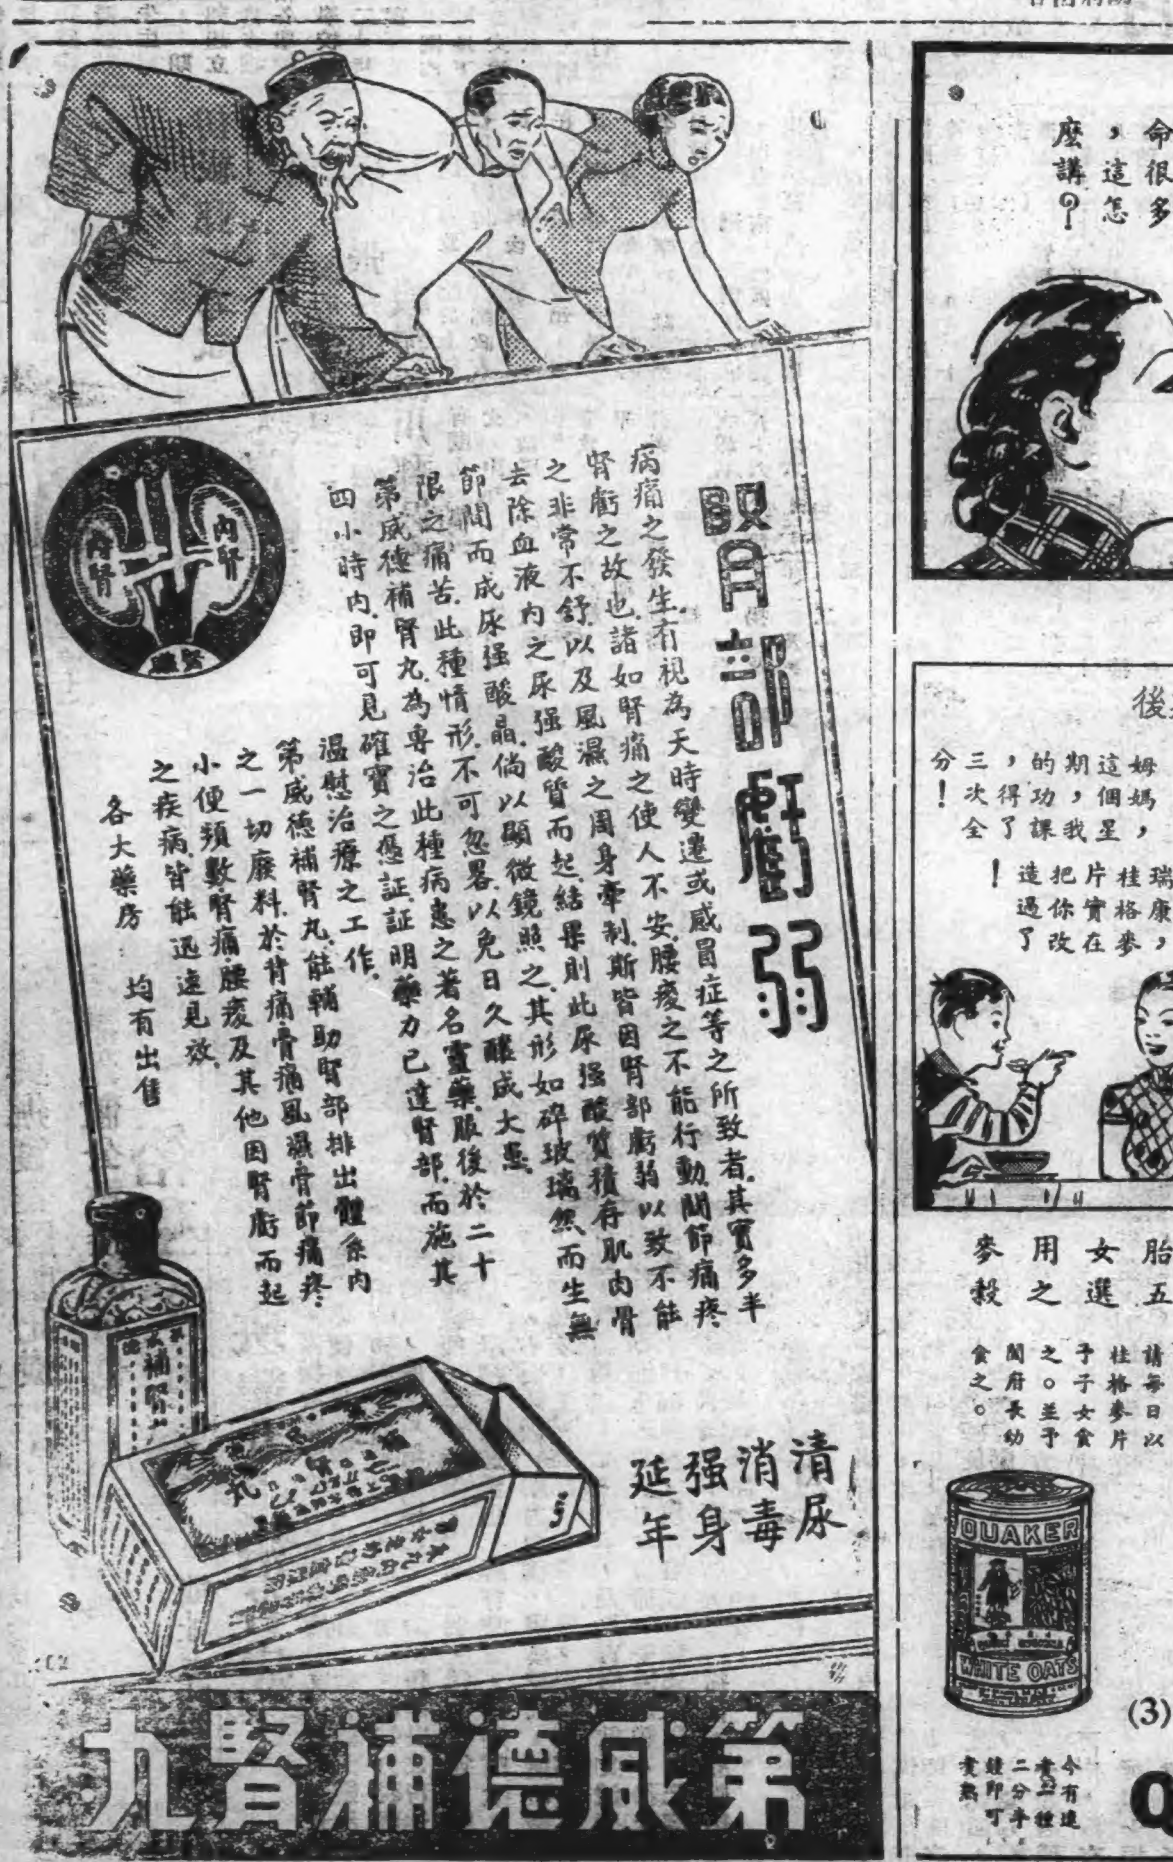 腎部虧弱
病痛之發生.有視為天時變遷或感冒症等之所致者.其實多半
腎虧之故也.諸如腎痛之使人不安.腰痠之不能行動.關節痛疼
之非常不舒.以及風濕之周身牽制.斯皆因腎部虧弱以致不能
去除血液内之尿强酸質而起.結果則此尿强酸質積存肌肉骨
節間而成尿强酸晶.倘以顯微鏡照之.其形如碎玻璃然.而生無
限之痛苦.此種情形.不可忽畧.以免日久釀成大患.
第威德補腎丸.為專治此種病患之著名靈藥.服後於二十
四小時内.即可見確實之憑証.証明藥力已達腎部.而施其
溫慰治療之工作.
第威德補腎丸.能輔助腎部排出體系内
之一切廢料.於背痛骨痛風濕骨節痛疼
小便頻數.腎痛.腰痠及其他因腎虧而起
之疾病.皆能迅速見效.
各大藥房 均有出售
内腎
内腎
補腎丸
清尿
消毒
强身
延年
第威德補腎丸
命很多
，這怎
麼講？
後
姆媽，
這個星
期，我
的功課
，得了
三次全
分！
瑞康，
桂格麥
片實在
把你改
造過了
！
胎五
女選
用之
麥穀
請每日以
桂格麥片
予子女食
之。並予
闔府長幼
食之。
QUAKER
WHITE OATS
(3)
今有速
煮一種
二分半
鐘即可
煮熟
Q